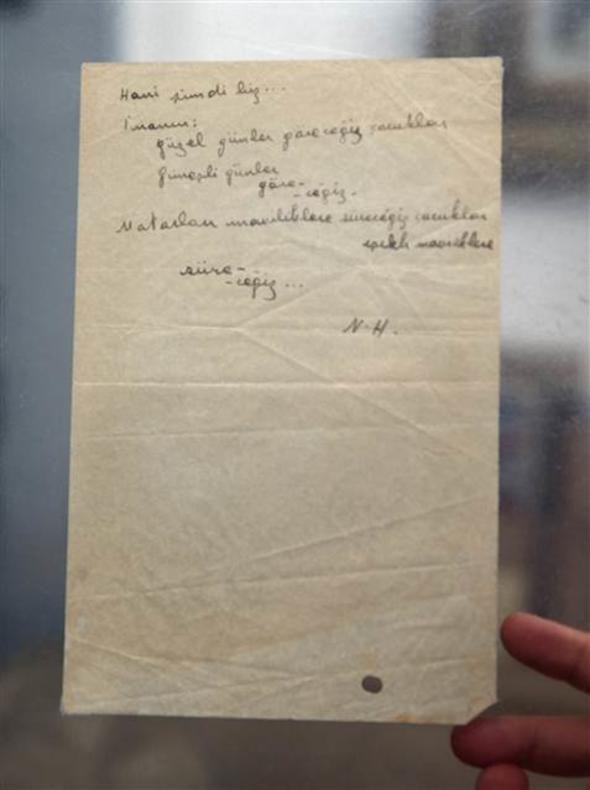 Hani şimdi biz...
İnanın:
güzel günler göreceğiz çocuklar
güneşli günler
göre-
-ceğiz.
Motorları maviliklere süreceğiz çocuklar
ışıklı maviliklere
süre-
-ceğiz...
N.H.